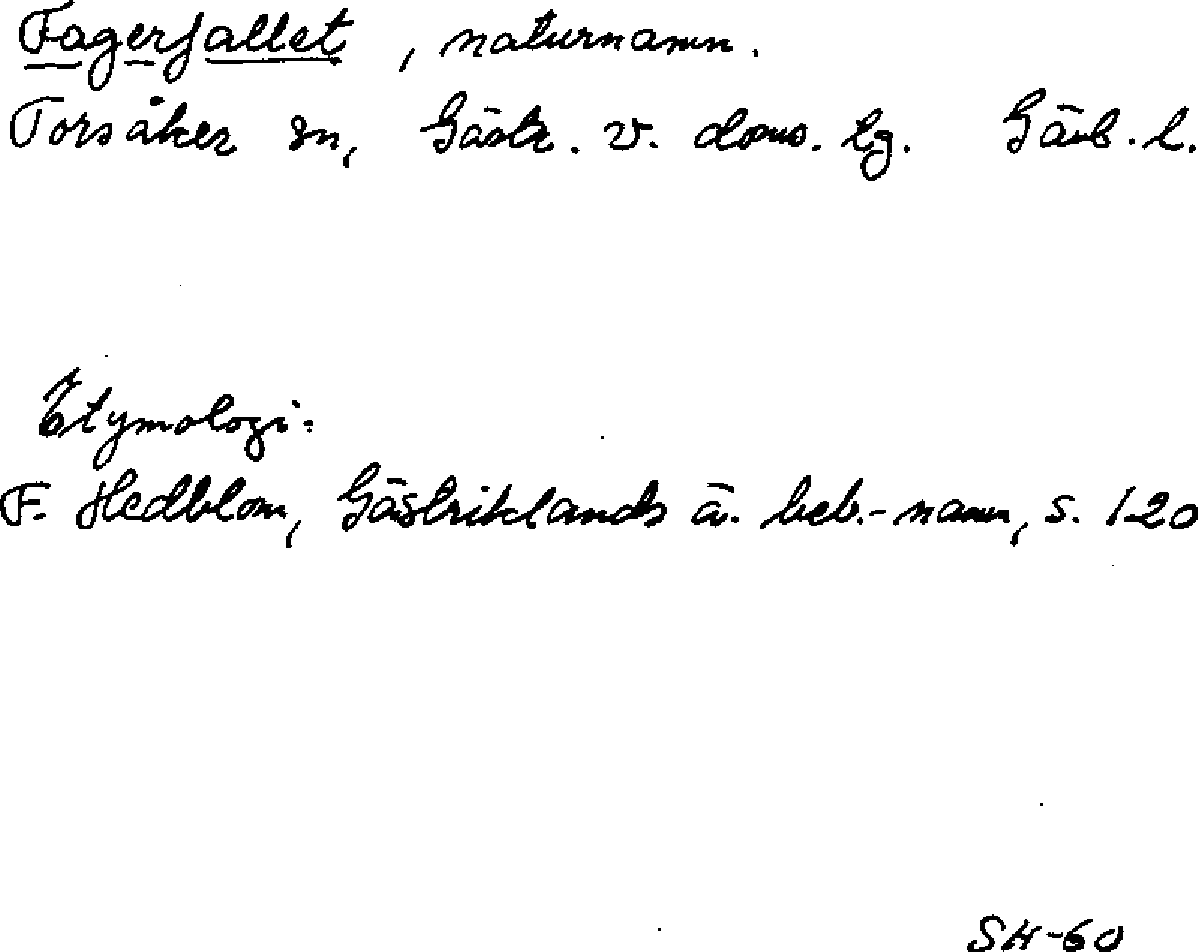 Fagerfallet, naturnamn.
Torsåker sn, Gästr. v. doms. tg. Gävb. l.
Etymologi:
F. Hedblom, Gästriklands ä. beb.-namn, s. 120
SH-60